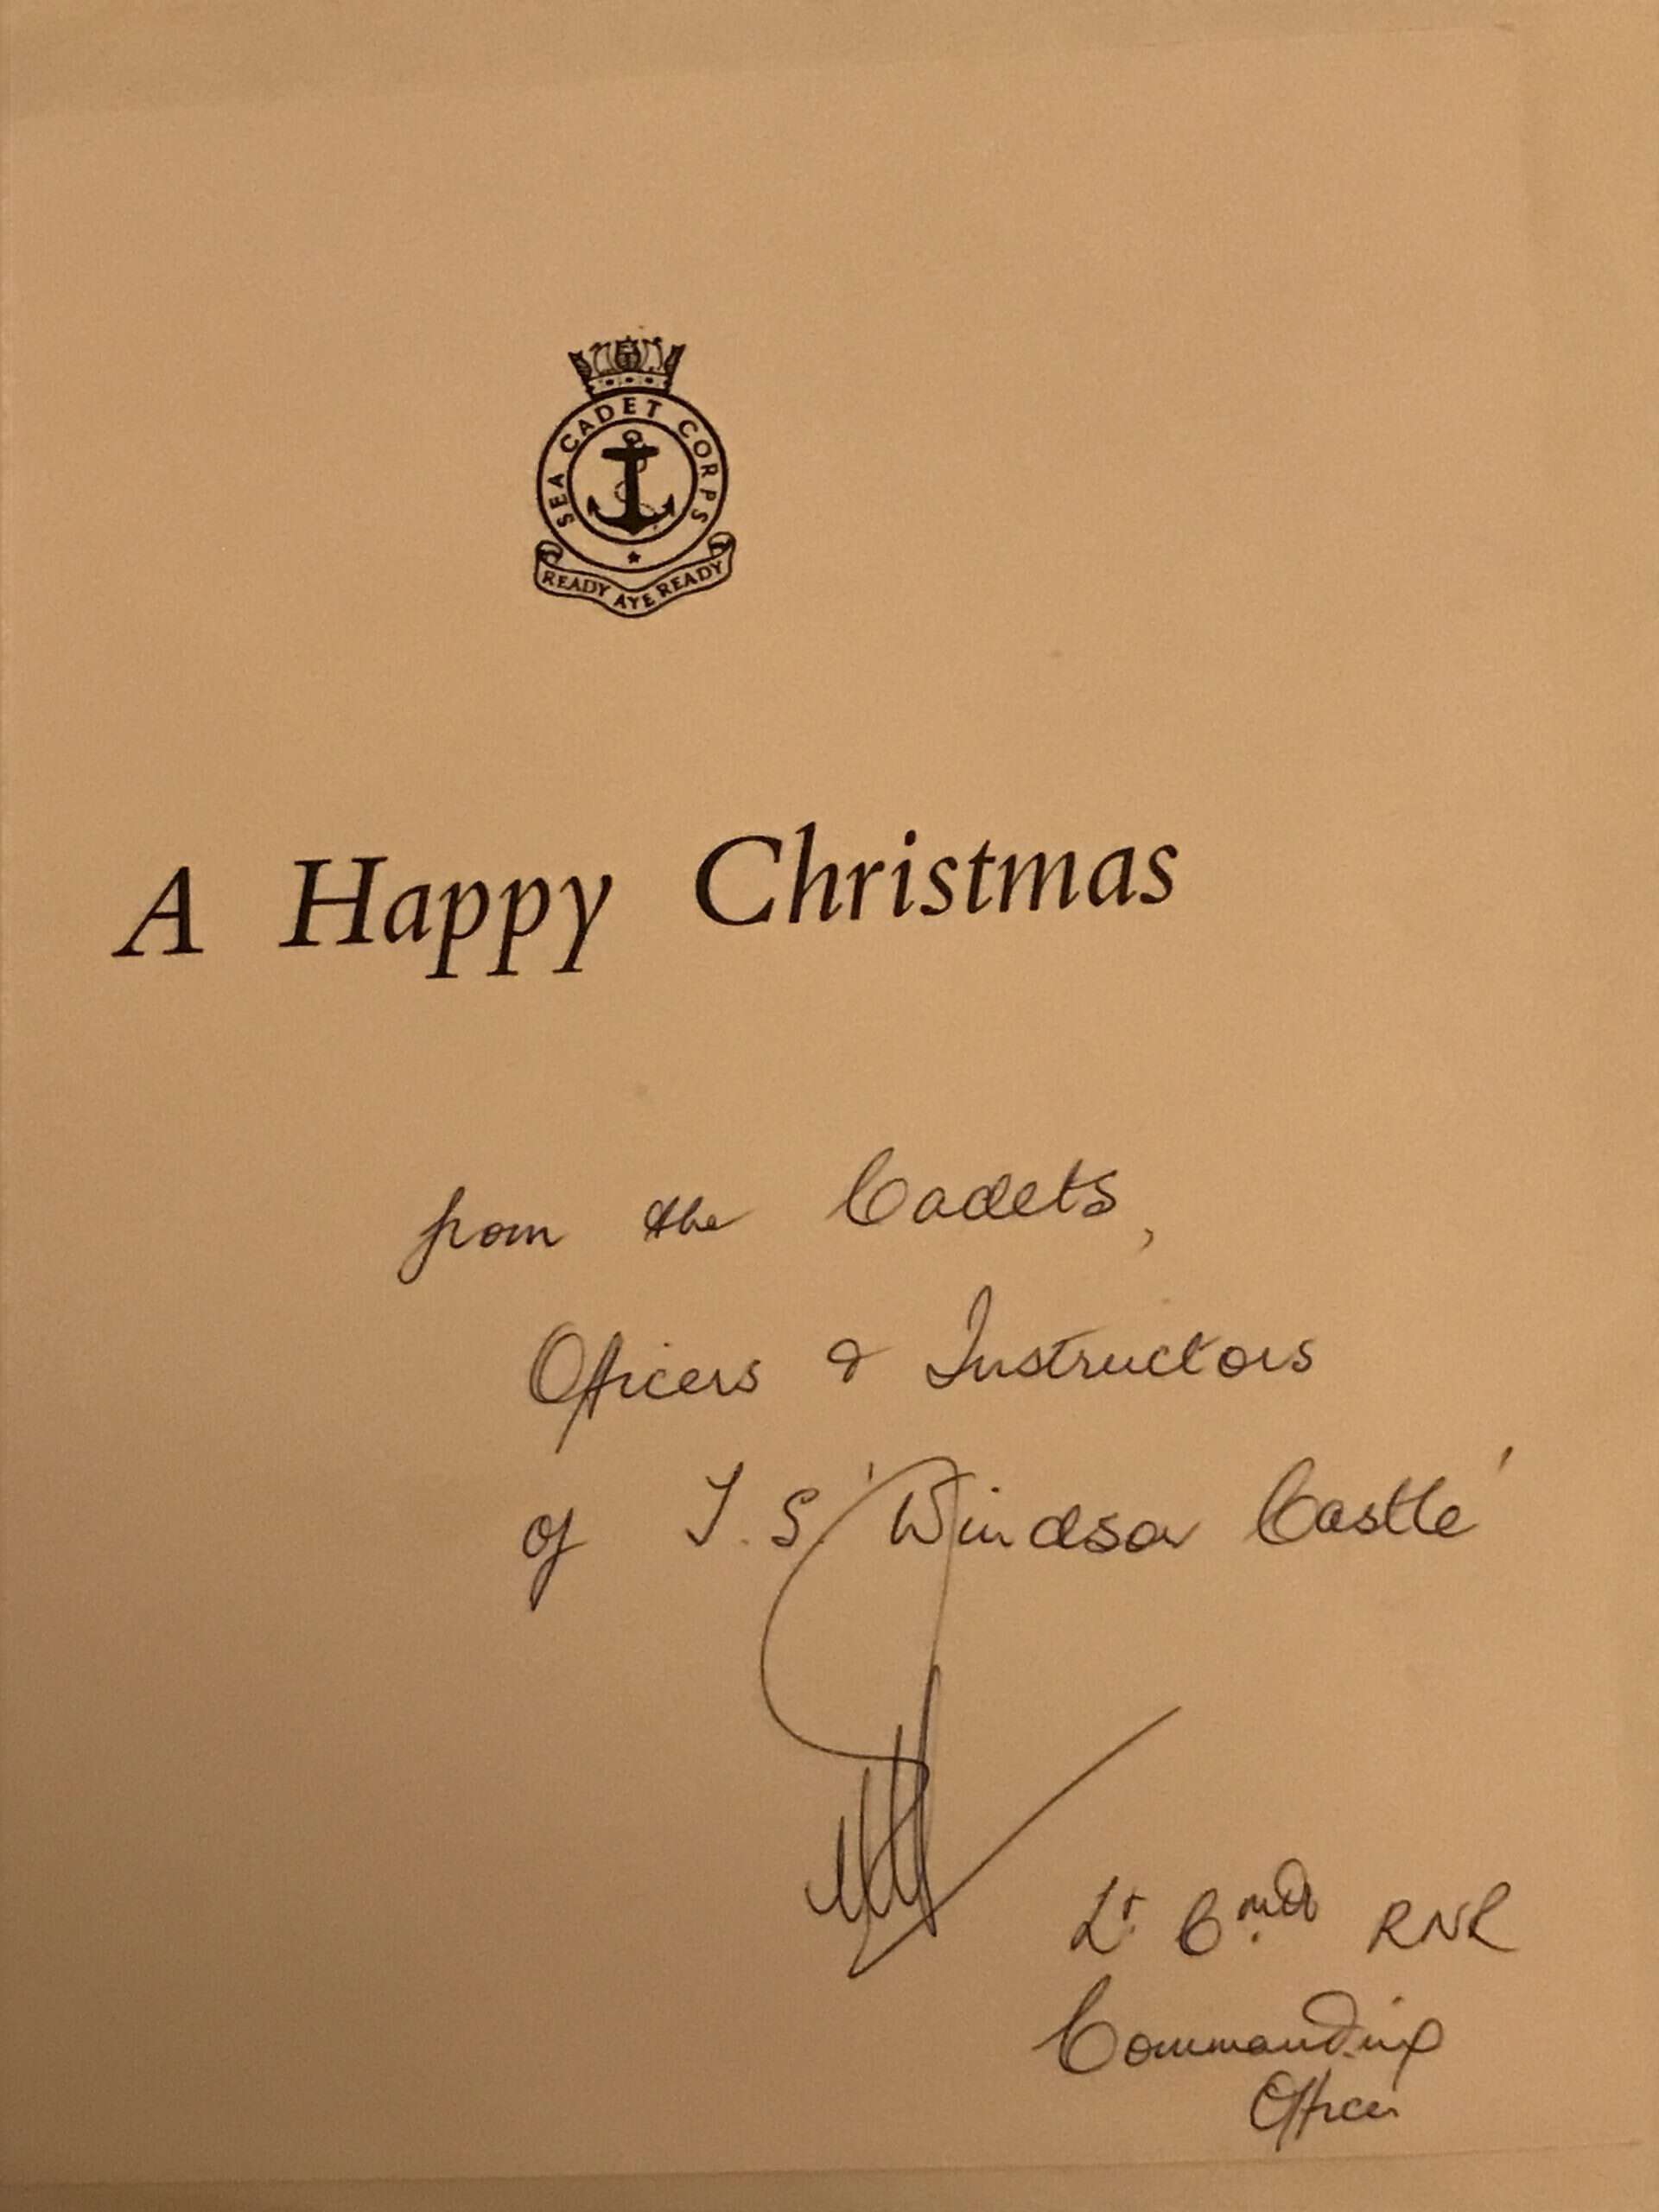 SEA CADET CORPS
READY AYE READY
A Happy Christmas
from the Cadets,
Officers & Instructors
of T.S. 'Windsor Castle'
Lt. Cmdr RNR
Commanding
Officer